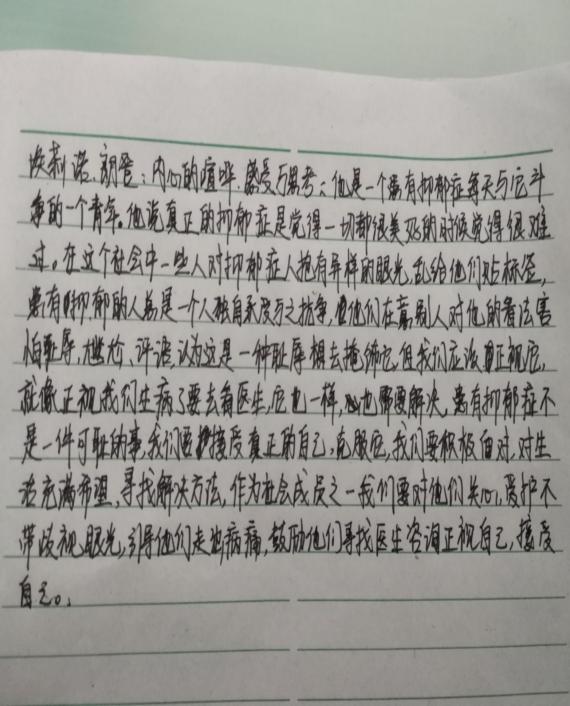 埃莉诺.朗登：内心的喧哗.感受与思考：他是一个患有抑郁症每天与它斗
争的一个青年。他说真正的抑郁症是觉得一切都很美好的时候觉得很难
过。在这个社会中一些人对抑郁症人抱有异样的眼光,乱给他们贴标签,
患有抑郁的人总是一个人独自承受与之抗争,他们在意别人对他的看法害
怕耻辱、尴尬、评语,认为这是一种耻辱想去掩饰它,但我们应该正视它,
就像正视我们生病了要去看医生,它也一样,心也需要解决,患有抑郁症不
是一件可耻的事,我们要接受真正的自己,克服它,我们要积极面对,对生
活充满希望,寻找解决方法,作为社会成员之一我们要对他们关心,爱护不
带歧视眼光,引导他们走出病痛,鼓励他们寻找医生咨询正视自己,接受
自己。